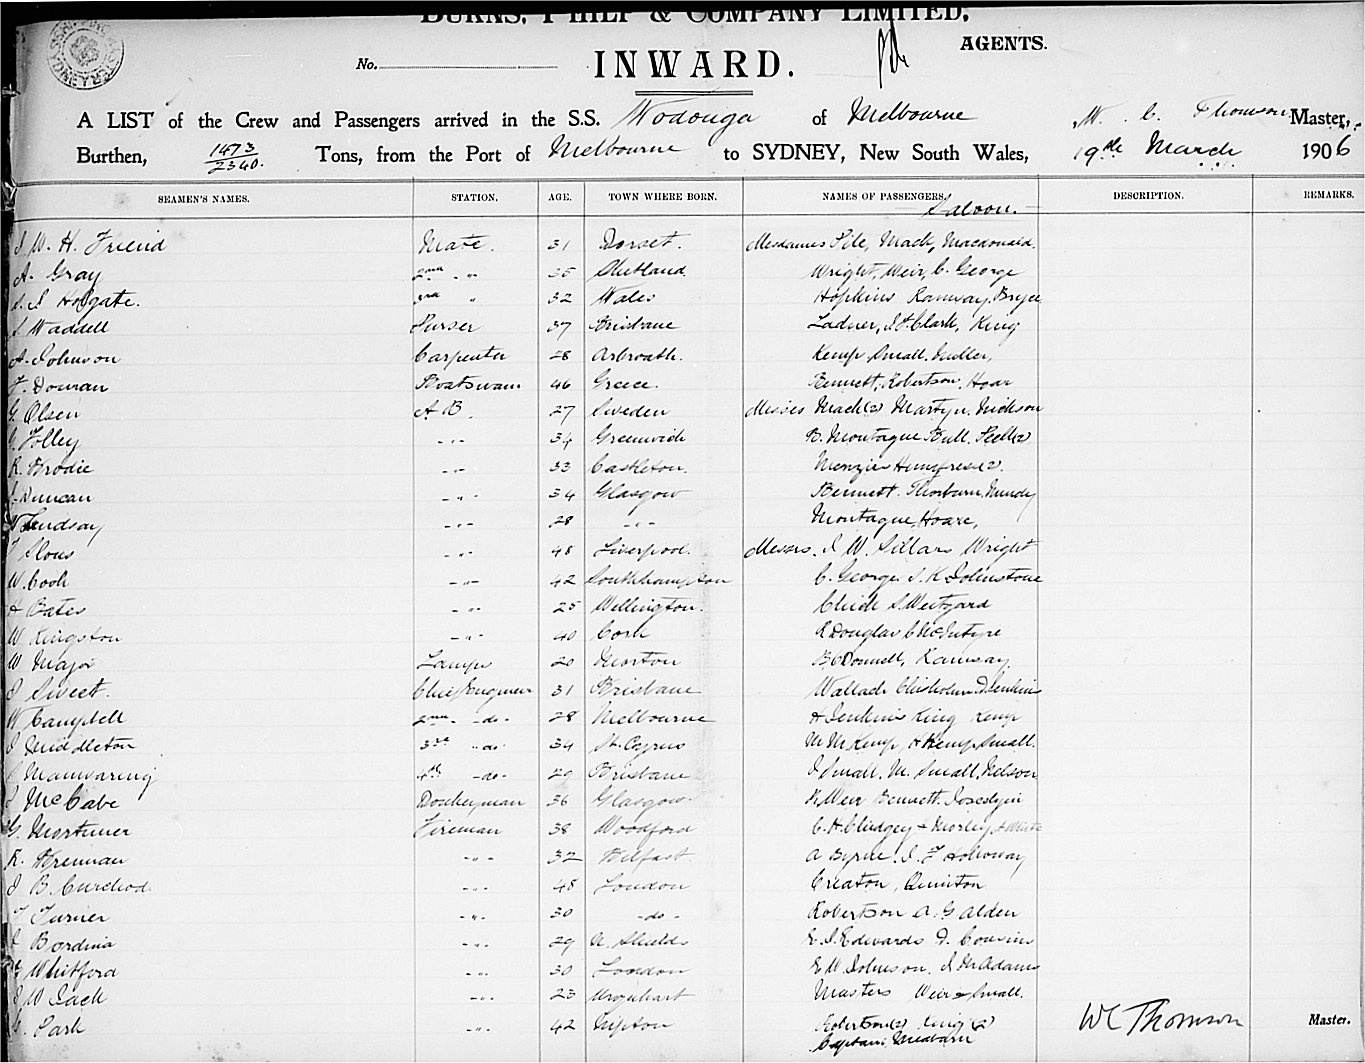 BURNS, PHILP & COMPANY LIMITED,
AGENTS.
No.
INWARD.
A LIST of the Crew and Passengers arrived in the S.S. Wodonga of Melbourne W. C. Thomson Master,
Burthen, 1473/2340. Tons, from the Port of Melbourne to SYDNEY, New South Wales, 19th March 1906
SEAMEN'S NAMES. STATION. AGE. TOWN WHERE BORN. NAMES OF PASSENGERS. DESCRIPTION. REMARKS.
Saloon.
W. H. Friend Mate. 31 Dorset. Mesdames Pile, Mack, Macdonald
A. Gray 2nd " 35 Shetland Wright, Weir, C. George
Holgate. 3rd " 32 Wales Hopkins Ramsay, Bryce
Waddell Purser 37 Brisbane Ladner, Clark, King
A. Johnson Carpenter 28 Arbroath. Kemp, Small, Miller,
Boatswain 46 Greece. Bennett, Robertson, Hoar
G. Olsen A B. 27 Sweden Misses Mack (2) Martyn,
Folley -"- 34 Greenwich B. Montague Bull,
R. Brodie -"- 33 Castleton. Menzies
Duncan -"- 34 Glasgow Bennett. Thorburn,
Lindsay -"- 28 -"- Montague, Hoare,
-"- 48 Liverpool. Messrs. J. W. Sillars Wright
W. Cook -"- 42 Southhampton C. George J. K Johnstone
Bates -"- 25 Wellington.
W Kingston -"- 40 Cork Douglas C McIntyre
W Major Lamps 20 Morton Ramsay,
J Sweet. Chief Engineer 31 Brisbane Wallach Chisholm Jenkins
Campbell 2nd -do- 28 Melbourne H Jenkins King Kemp
J Middleton 3rd "do" 34 St. Cyrus M M Kemp, H Kemp, Small.
Mainwaring 4th -do- 29 Brisbane J Small. M. Small, Nelson
McCabe Donkeyman 36 Glasgow. Weir Bennett.
G. Mortimer Fireman 38 Woodford C. H. Morley,
R. Brennan -"- 32 Belfast. A Byrne. J. F Holloway
J B. -"- 48 London Creaton, Quinton
Turner -"- 30 -do- Robertson A. G Alden
-"- 29 N. Shields E. J. Edwards J. Cousins
Whitford -"- 30 London E W Johnson. Adams
J W Jack -"- 23 Urquhart Masters Weir Small.
Park -"- 42 Robertson (2) King (2) WC Thomson Master.
Captain